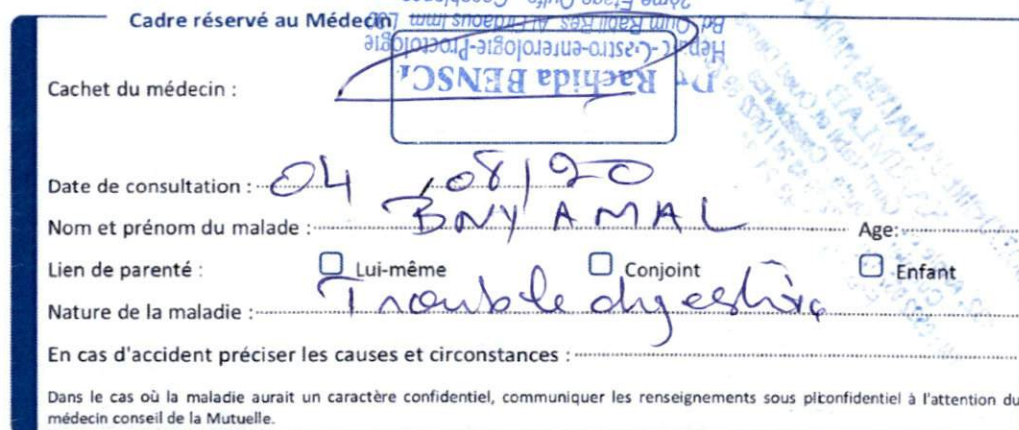 Cadre réservé au Médecin
2ème Etage Oulfa - Casablanca
Bd Oum Rabii Rés. Al Firdaous Imm
Hépato-Gastro-enterologie-Proctologie
Dr. Rachida BENSC
Cachet du médecin :
Date de consultation : 04 / 08 / 20
Nom et prénom du malade : BNY AMAL Age:
Lien de parenté : Lui-même Conjoint Enfant
Nature de la maladie : Trouble digestive
En cas d'accident préciser les causes et circonstances :
Dans le cas où la maladie aurait un caractère confidentiel, communiquer les renseignements sous pliconfidentiel à l'attention du
médecin conseil de la Mutuelle.